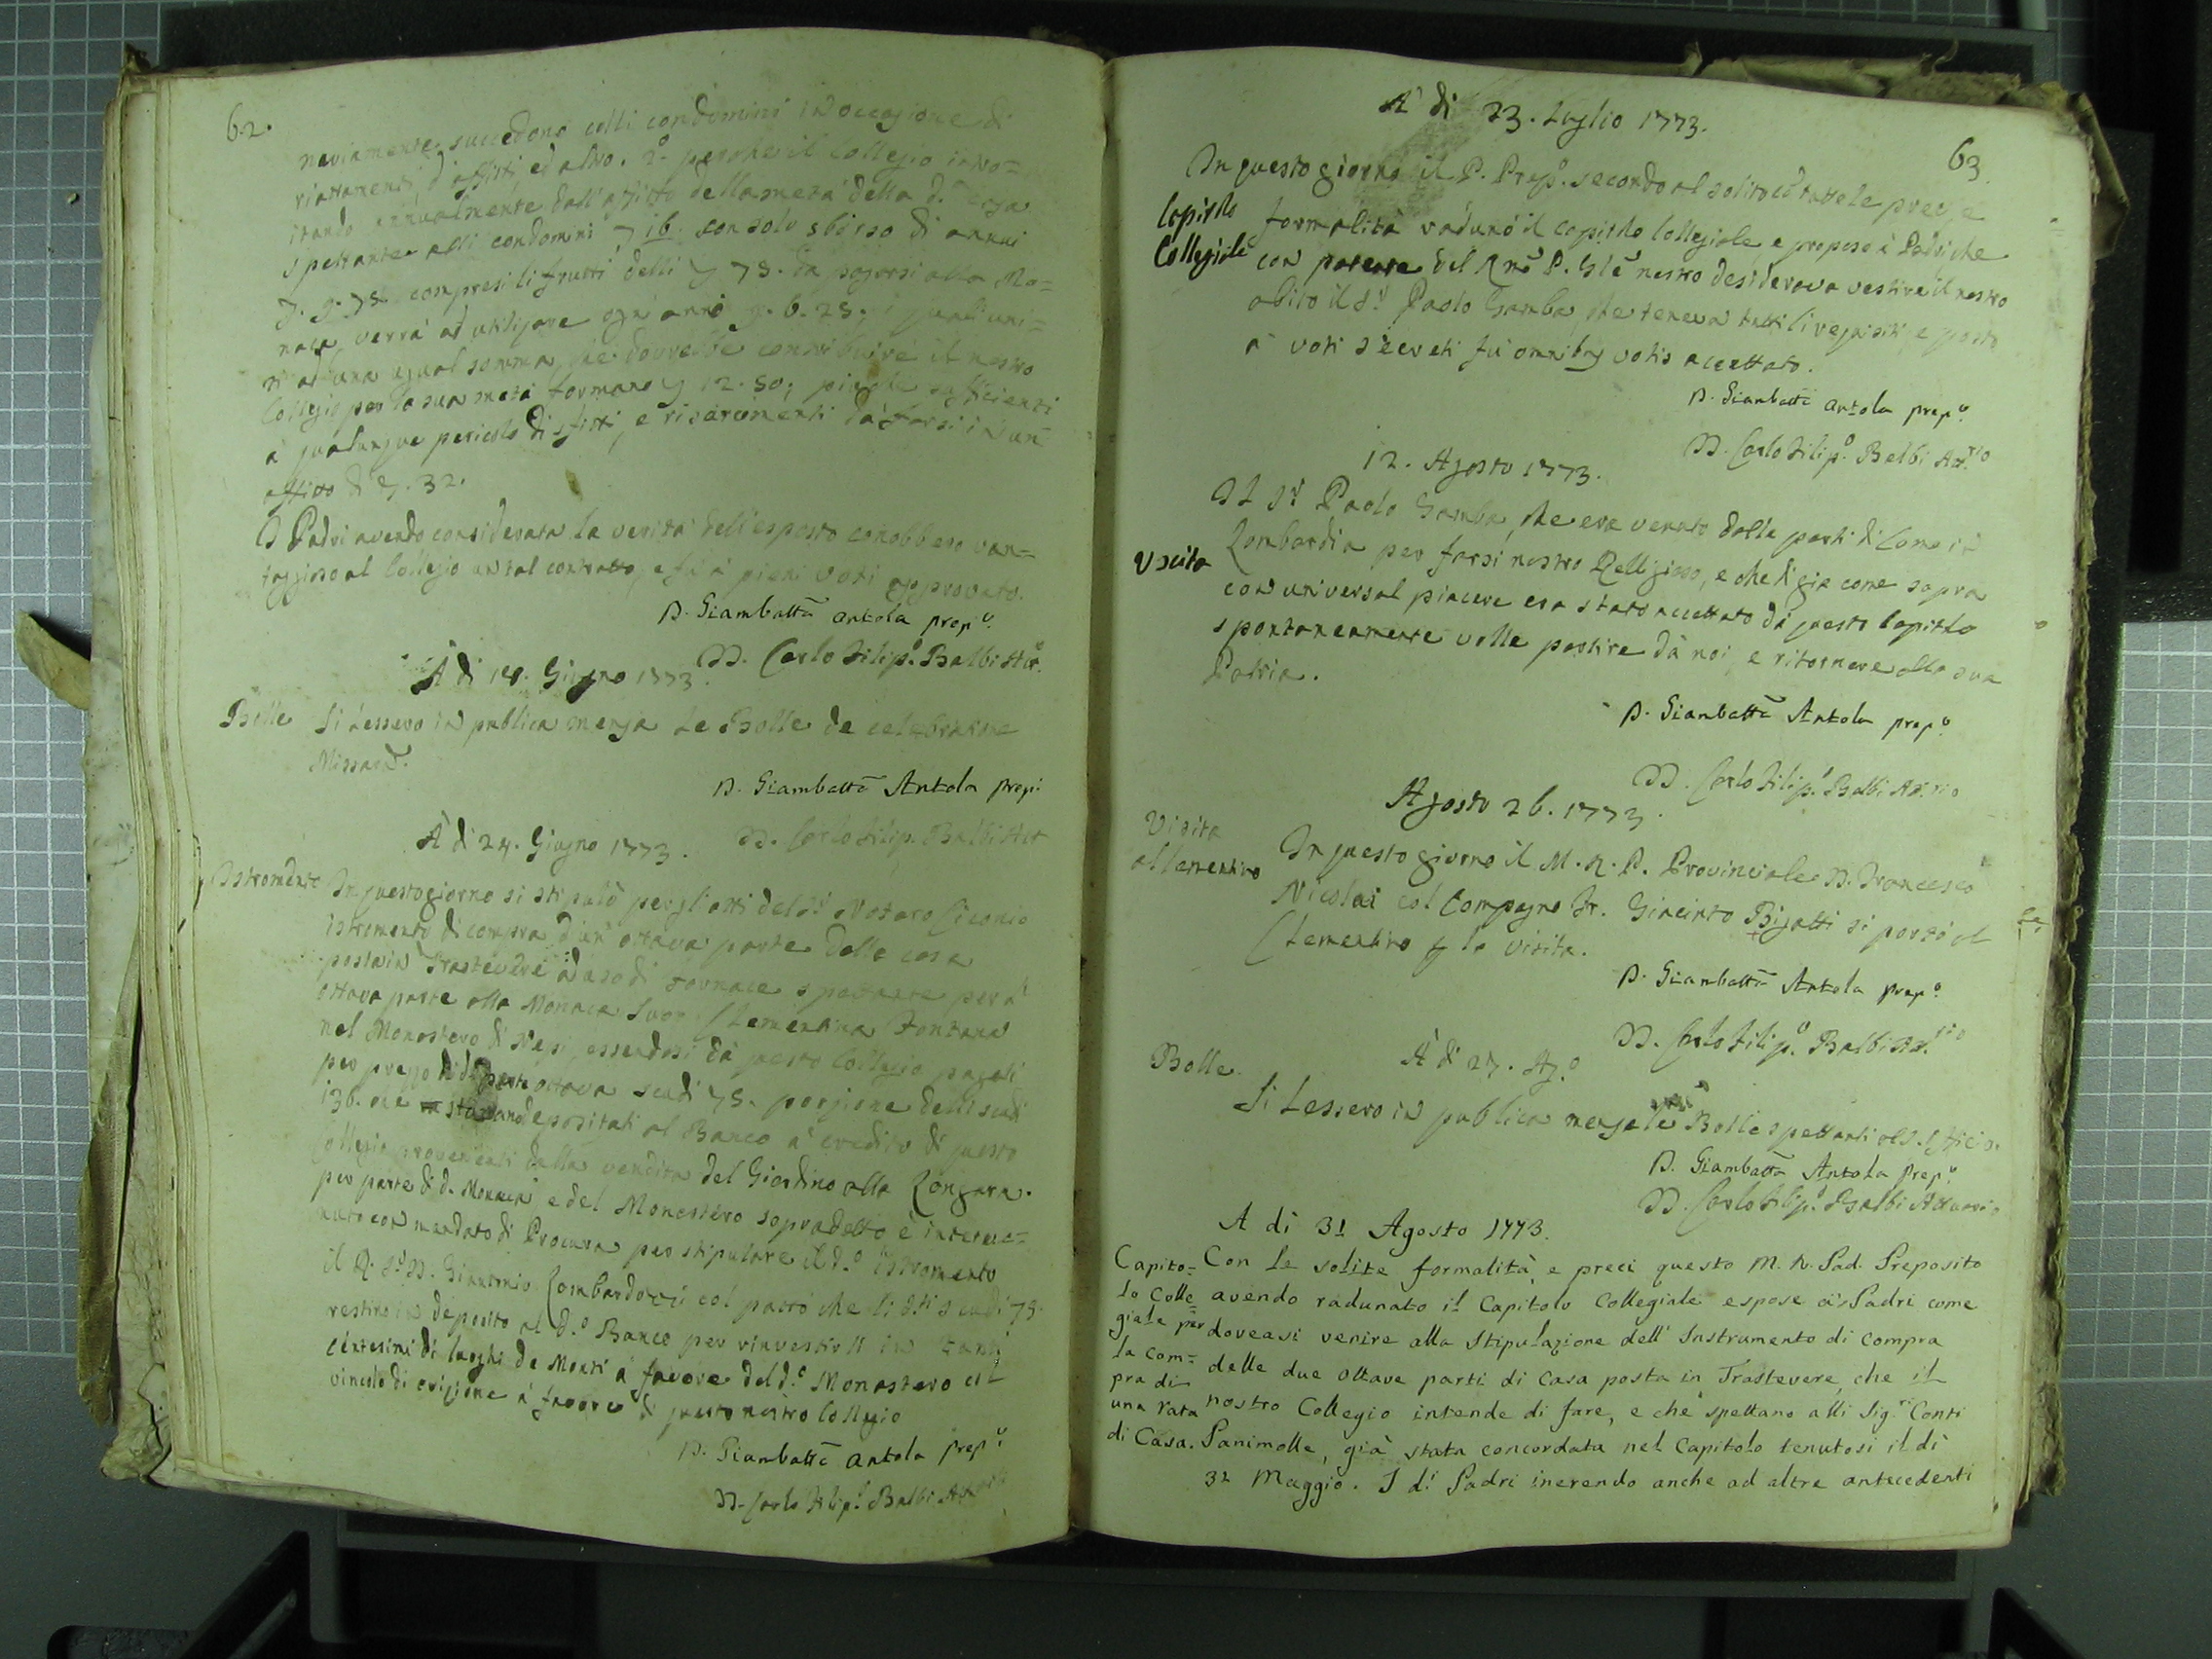 62.
nariamente succedono colli condomini in occasione di
riattamenti, d'affitti ed altro. 2.° perche il Collegio intro=
itando annualmente dall'affitto della metà della d.a casa
spettante alli condomini 16. con solo sborso di annui
9:75 compresi li frutti delli 75. da pagarsi alla Mo=
naca verrà ad utilizare ogni anno 6.25; i quali uni=
ti ad una egual somma, che dovrebbe contribuire il nostro
Collegio per la sua metà formano 12.50; più che sufficienti
à qualunque pericolo di sfitti, e risarcimenti da farsi in un
affitto di 32.
I Padri avendo considerata la verità dell'esposto conobbero van=
taggioso al Collegio un tal contratto, e fù à pieni voti approvato.
D. Giambatta Antola prep.o
D. Carlo Filip.o Balbi Att.o
A di 14. Giugno 1773.
Bolle Si lessero in publica mensa le Bolle de celebratione
Missarū.
D. Giambatta Antola prep.
D. Carlo Filip. Balbi Att
A di 24. Giugno 1773.
Istromento In questo giorno si stipulò per gl'atti del S.r Notaro Ciconio
istromento di compra d'un ottava parte della casa
posta in Trastevere ad uso di fornace spettante per d.a
ottava parte alla Monaca Suor Clementina Fontana
nel Monastero di Nepi, essendosi da questo Collegio pagati
per prezzo di d.a parte ottava scudi 75. porzione delli scudi
136. che stavano depositati al Banco a credito di questo
Collegio provenienti dalla vendita del Giardino alla Longara.
per parte di d.a Monaca e del Monastero sopradetto è interve=
nuto con mandato di Procura per stipulare il d.o istromento
il R. S.r D. Giantonio Lombardo col patto che li d.ti scudi 75.
restino in deposito al d.o Banco per rinvestirli in tanti
centesimi di luoghi de Monti à favore del d.o Monastero col
vincolo di evizione à favore di questo nostro Collegio
D. Giambatta Antola prep.o
D. Carlo Filip.o Balbi Att.rio
63
A di 23. Luglio 1773.
In questo giorno il P. Prep.o secondo al solito cō tutte le preci, e
Capitolo formalità radunò il Capitolo Collegiale, e propose à Padri che
Collegiale con parere del Rmō P. Gle nostro desiderava vestire il nostro
abito il S.r Paolo Gamba, che teneva tutti li requisiti, e posto
à voti secreti fù omnibus votis accettato.
D. Giambatta Antola prep.o
D. Carlo Filip.o Balbi Att.rio
12. Agosto 1773.
Il S.r Paolo Gamba, che era venuto dalle parti di Como in
Uscita Lombardia per farsi nostro Religioso, e che di già come sopra
con universal piacere era stato accettato da questo Capitolo
spontaneamente volle partire da noi, e ritornare alla sua
Patria.
D. Giambatta Antola prep.o
D. Carlo Filip.o Balbi Att.rio
Agosto 26. 1773.
Visita
al Clementino In questo giorno il M. R. P. Provinciale D. Francesco
Nicolai col Compagno Fr. Giacinto Bigatti si portò al
Clementino p la visita.
D. Giambatta Antola prep.o
D. Carlo Filip.o Balbi Att.rio
A di 27. Ag.o
Bolle. Si lessero in publica mensa le Bolle spettanti al S. Officio.
D. Giambatta Antola Prep.o
D. Carlo Filip.o Balbi Attuario
A di 31 Agosto 1773.
Capito= Con le solite formalità, e preci questo M. R. Pad. Preposito
lo Colle= avendo radunato il Capitolo Collegiale espose a' Padri come
giale per doveasi venire alla stipulazione dell' Instrumento di compra
la com= delle due ottave parti di Casa posta in Trastevere, che il
pra di nostro Collegio intende di fare, e che spettano alli Sig.ri Conti
una rata
di Casa. Panimolle, già stata concordata nel Capitolo tenutosi il dì
31 Maggio. I d.i Padri inerendo anche ad altre antecedenti